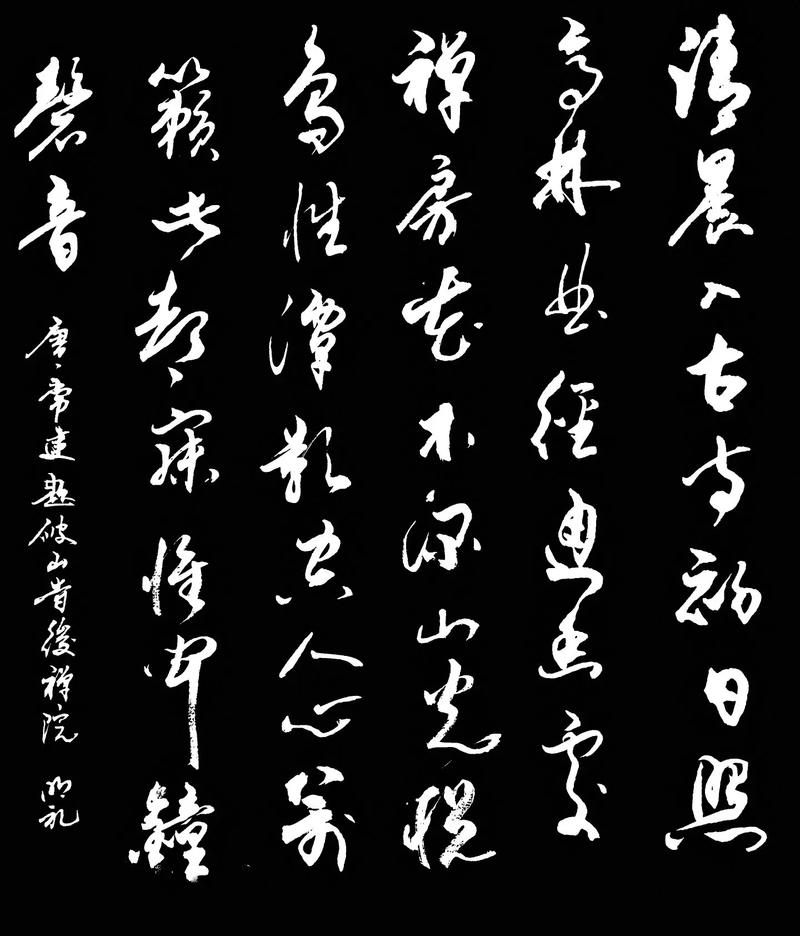 清晨入古寺初日照
高林曲徑通幽處
禪房花木深山光悅
鳥性潭影空人心萬
籟此都寂惟聞鐘
磬音
唐常建題破山寺後禪院